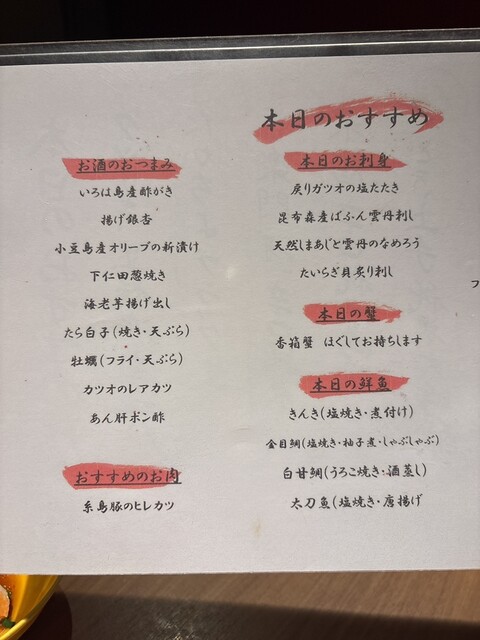 本日のおすすめ
本日のお刺身
戻りガツオの塩たたき
昆布森産ばふん雲丹刺し
天然しまあじと雲丹のなめろう
たいらぎ貝炙り刺し
本日の蟹
香箱蟹 ほぐしてお持ちします
本日の鮮魚
きんき(塩焼き・煮付け)
金目鯛(塩焼き・柚子煮・しゃぶしゃぶ)
白甘鯛(うろこ焼き・酒蒸し)
太刀魚(塩焼き・唐揚げ
お酒のおつまみ
いろは島産酢がき
揚げ銀杏
小豆島産オリーブの新漬け
下仁田葱焼き
海老芋揚げ出し
たら白子(焼き・天ぷら)
牡蠣(フライ・天ぷら)
カツオのレアカツ
あん肝ポン酢
おすすめのお肉
糸島豚のヒレカツ
フ